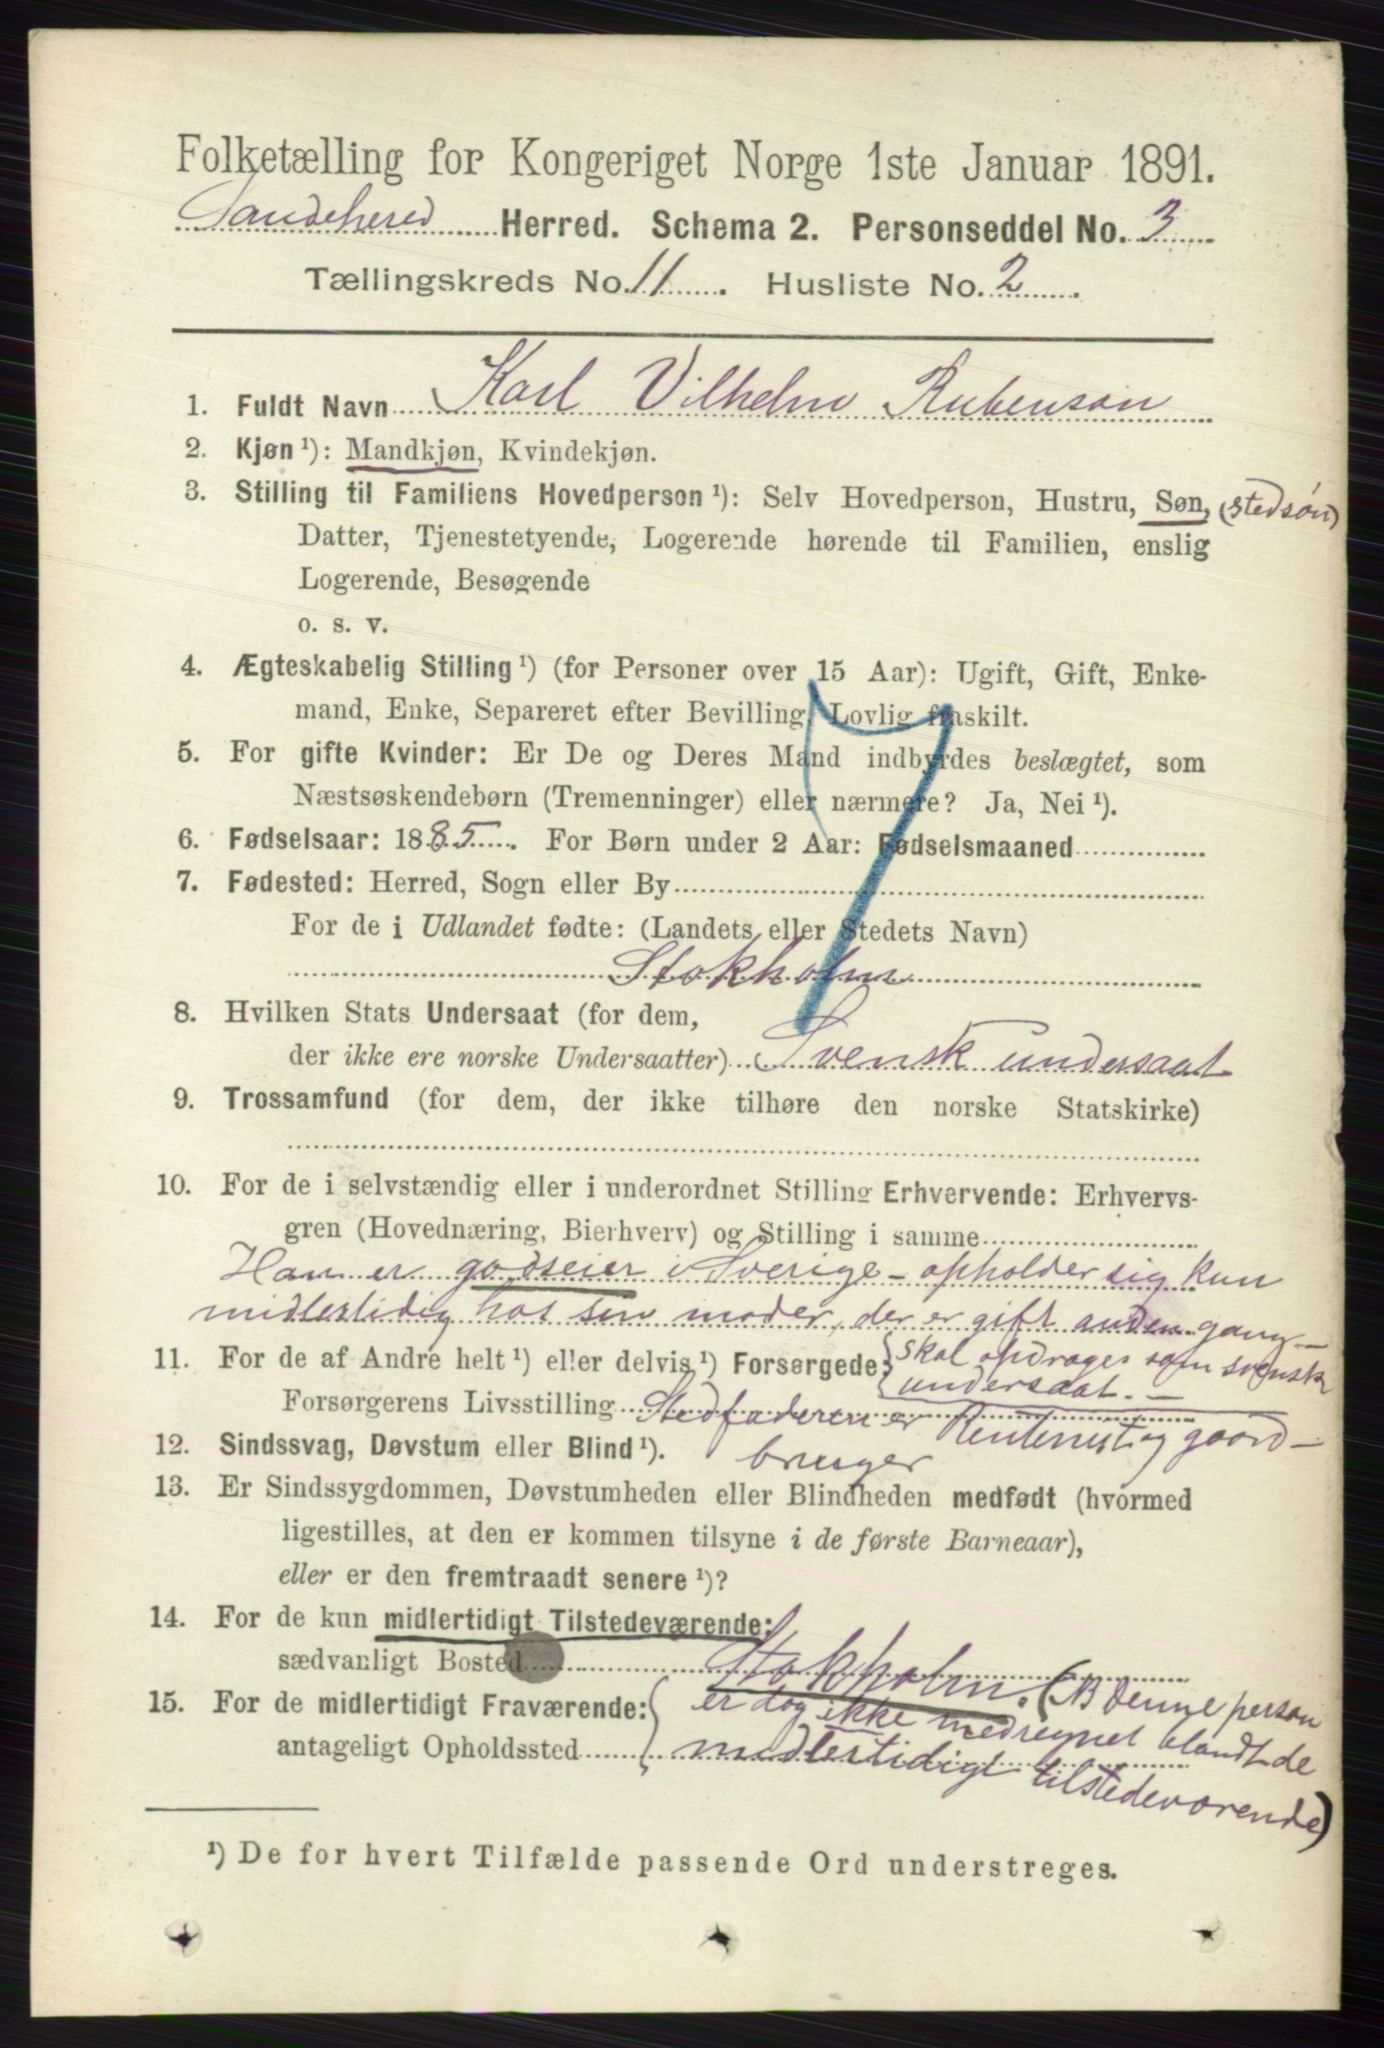 Folketælling for Kongeriget Norge 1ste Januar 1891.
Sandehered Herred. Schema 2. Personseddel No. 3
Tællingskreds No. 11. Husliste No. 2.
1. Fuldt Navn Karl Vilhelm Rubenson
2. Kjøn ¹): Mandkjøn, Kvindekjøn.
3. Stilling til Familiens Hovedperson ¹): Selv Hovedperson, Hustru, Søn, (stedsøn)
Datter, Tjenestetyende, Logerende hørende til Familien, enslig
Logerende, Besøgende
o. s. v.
4. Ægteskabelig Stilling ¹) (for Personer over 15 Aar): Ugift, Gift, Enke-
mand, Enke, Separeret efter Bevilling, Lovlig fraskilt.
7
5. For gifte Kvinder: Er De og Deres Mand indbyrdes beslægtet, som
Næstsøskendebørn (Tremenninger) eller nærmere? Ja, Nei ¹).
6. Fødselsaar: 1885. For Børn under 2 Aar: Fødselsmaaned
7. Fødested: Herred, Sogn eller By
For de i Udlandet fødte: (Landets eller Stedets Navn)
Stokholm
8. Hvilken Stats Undersaat (for dem,
der ikke ere norske Undersaatter) Svensk undersaat
9. Trossamfund (for dem, der ikke tilhøre den norske Statskirke)
10. For de i selvstændig eller i underordnet Stilling Erhvervende: Erhvervs-
gren (Hovednæring, Bierhverv) og Stilling i samme
Han er godseier i Sverige - opholder sig kun
midlertidig hos sin moder, der er gift anden gang -
11. For de af Andre helt ¹) eller delvis ¹) Forsørgede: { skal opdrages som svensk
undersaat. -
Forsørgerens Livsstilling Stedfaderen er Rentenist og gaard-
12. Sindssvag, Døvstum eller Blind ¹). bruger
13. Er Sindssygdommen, Døvstumheden eller Blindheden medfødt (hvormed
ligestilles, at den er kommen tilsyne i de første Barneaar),
eller er den fremtraadt senere ¹)?
14. For de kun midlertidigt Tilstedeværende:
sædvanligt Bosted Stokholm. (NB denne person
15. For de midlertidigt Fraværende: { er dog ikke medregnet blandt de
antageligt Opholdssted midlertidigt tilstedeværende)
¹) De for hvert Tilfælde passende Ord understreges.